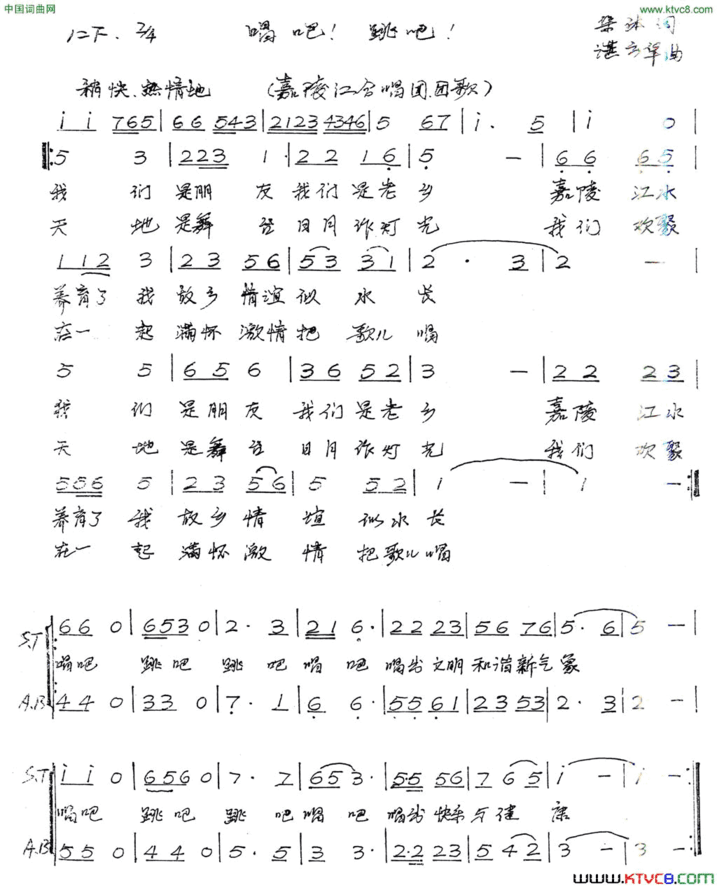 中国词曲网
www.ktvc8.com
1=F. 2/4 唱吧！跳吧！ 词
谌 华 曲
稍快.热情地 (嘉陵江合唱团.团歌)
i i 765 | 66 543 | 2123 4346 | 5 67 | i. 5 | i 0 |
5 3 | 223 1· | 22 16 | 5 — | 66 65 |
我们是朋友我们是老乡 嘉陵江水
天地是舞台日月作灯光 我们欢聚
112 3 | 23 56 | 53 31 | 2 · 3 | 2 — |
养育了我故乡情谊似水长
在一起满怀激情把歌儿唱
5 5 | 65 6 | 36 52 | 3 — | 22 23 |
我们是朋友我们是老乡 嘉陵江水
天地是舞台日月作灯光 我们欢聚
556 5 | 23 56 | 5 52 | 1 — | 1 — :|
养育了我故乡情谊似水长
在一起满怀激情把歌儿唱
S.T 66 0 | 653 0 | 2· 3 | 216 6· | 22 23 | 56 76 | 5· 6 | 5 — |
唱吧 跳吧 跳吧唱吧唱出文明和谐新气象
A.B 44 0 | 33 0 | 7· 1 | 6 6· | 55 61 | 23 53 | 2· 3 | 2 — |
S.T i i 0 | 656 0 | 7· 7 | 653 3· | 55 56 | 7 65 | i — | i — :|
唱吧 跳吧 跳吧唱吧 唱出快乐与健康
A.B 55 0 | 44 0 | 5· 5 | 3 3· | 22 23 | 5 42 | 3 — | 3 — :|
www.KTVC8.com